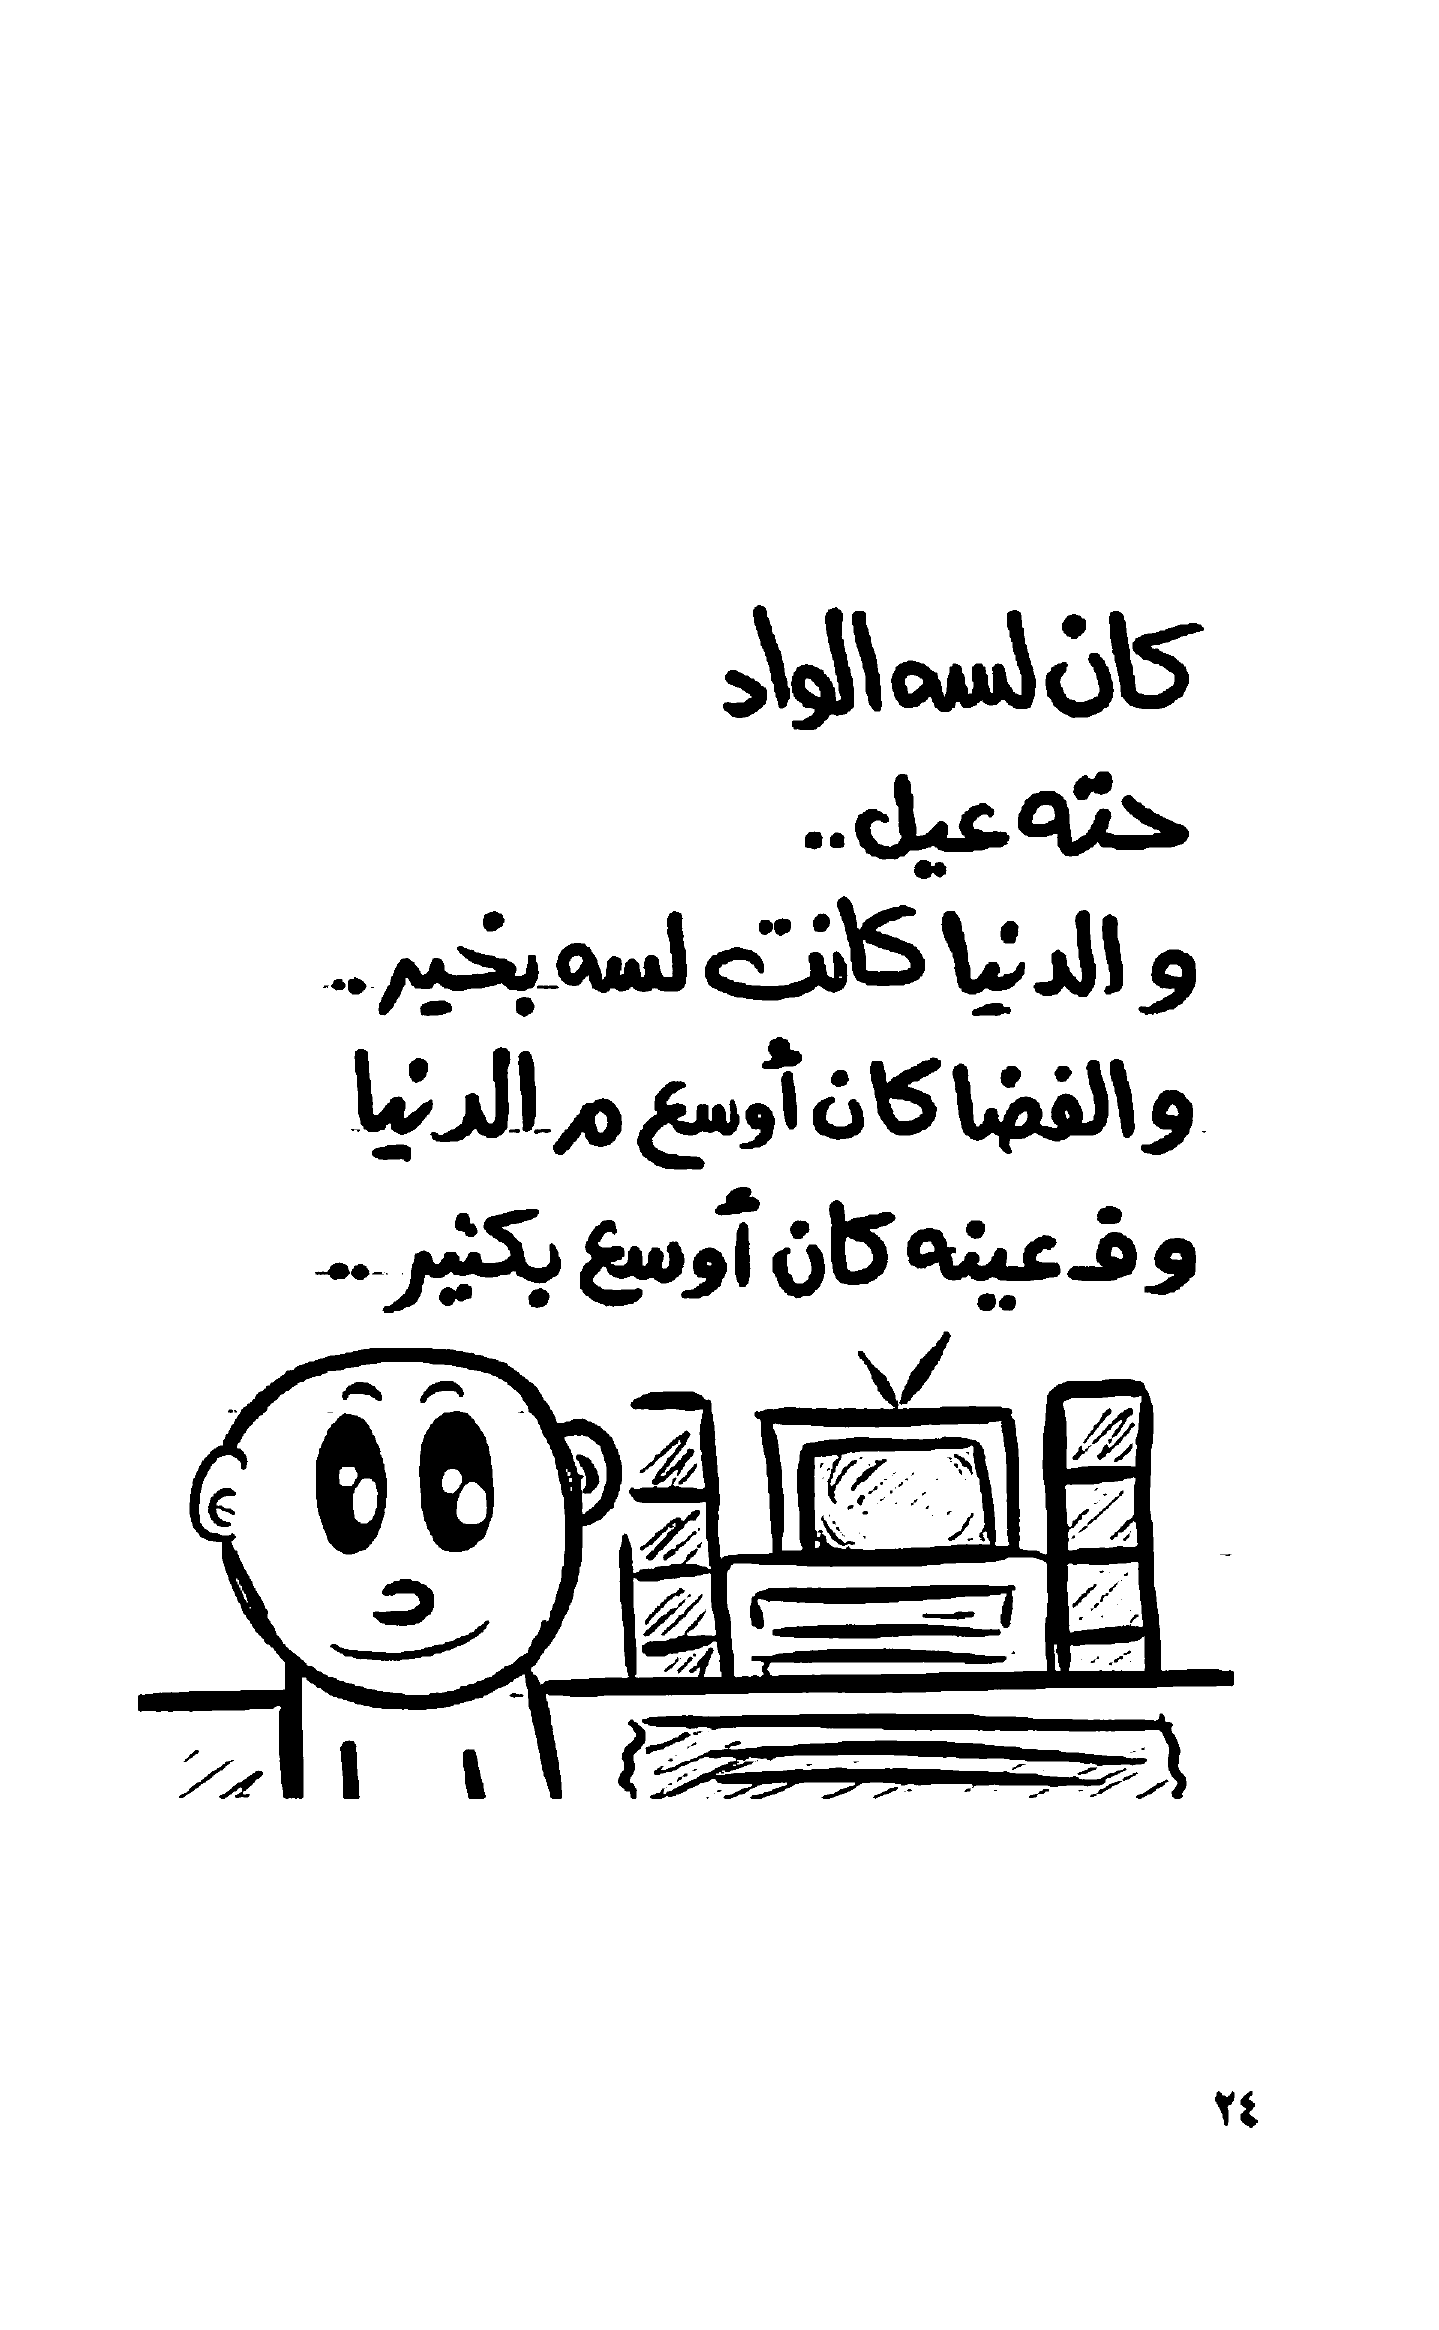 كان لسه الواد
حته عيل..
و الدنيا كانت لسه بخير..
و الفضا كان أوسع م الدنيا
و ف عينه كان أوسع بكتير..
٢٤